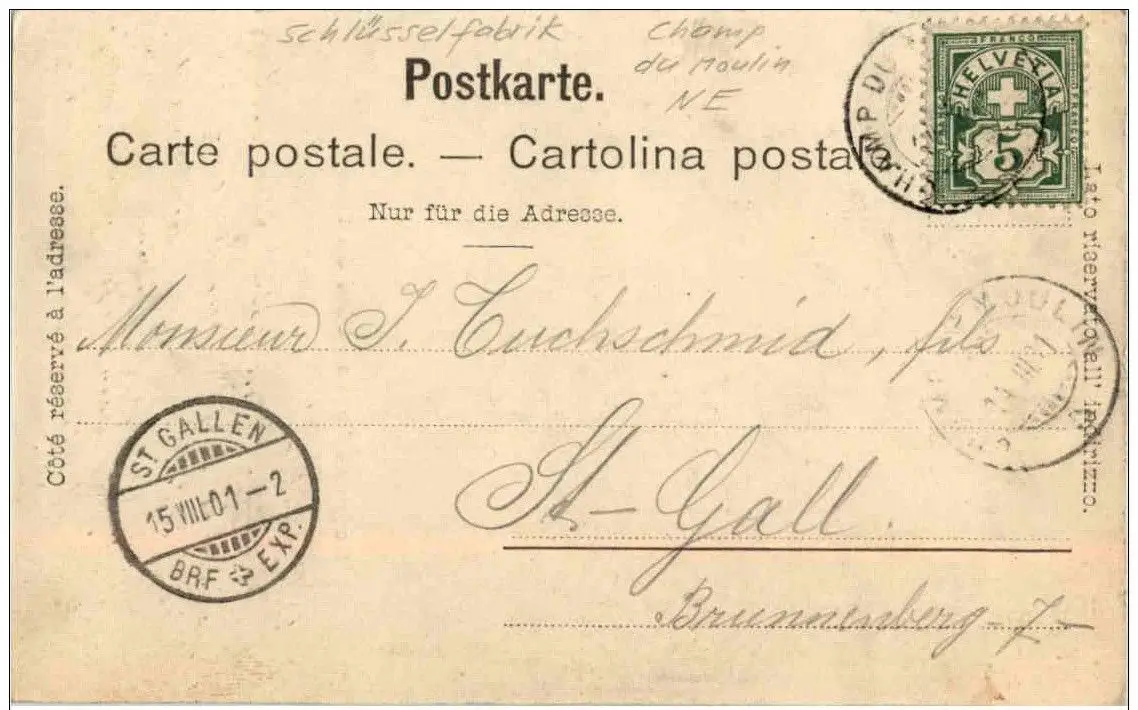 Schlüsselfabrik Champ
du Moulin
NE
Postkarte.
Carte postale. — Cartolina postale.
Nur für die Adresse.
Côté réservé à l'adresse.
Lato riservato all' indirizzo.
FRANCO
HELVETIA
5
CHAMP DU
MOULIN
Monsieur J. Tuchschmid, fils
St-Gall.
Brunnenberg-7-
ST GALLEN
15 VIII.01-2
BRF EXP.